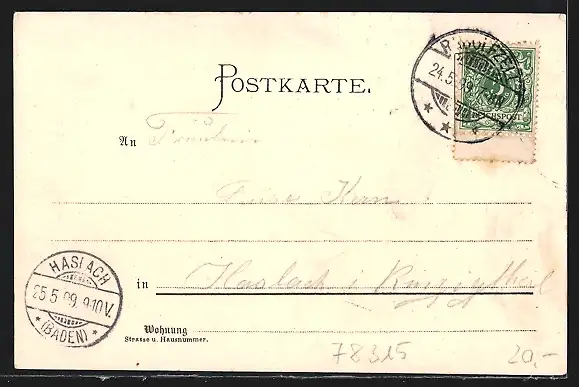 POSTKARTE.
RADOLFZELL
24.5.99
REICHSPOST
An Fräulein
Luise Kern
HASLACH
25.5.99.9-10V.
(BADEN)
in Haslach i Kinzigthal
Wohnung
Strasse u. Hausnummer.
78315
20,-